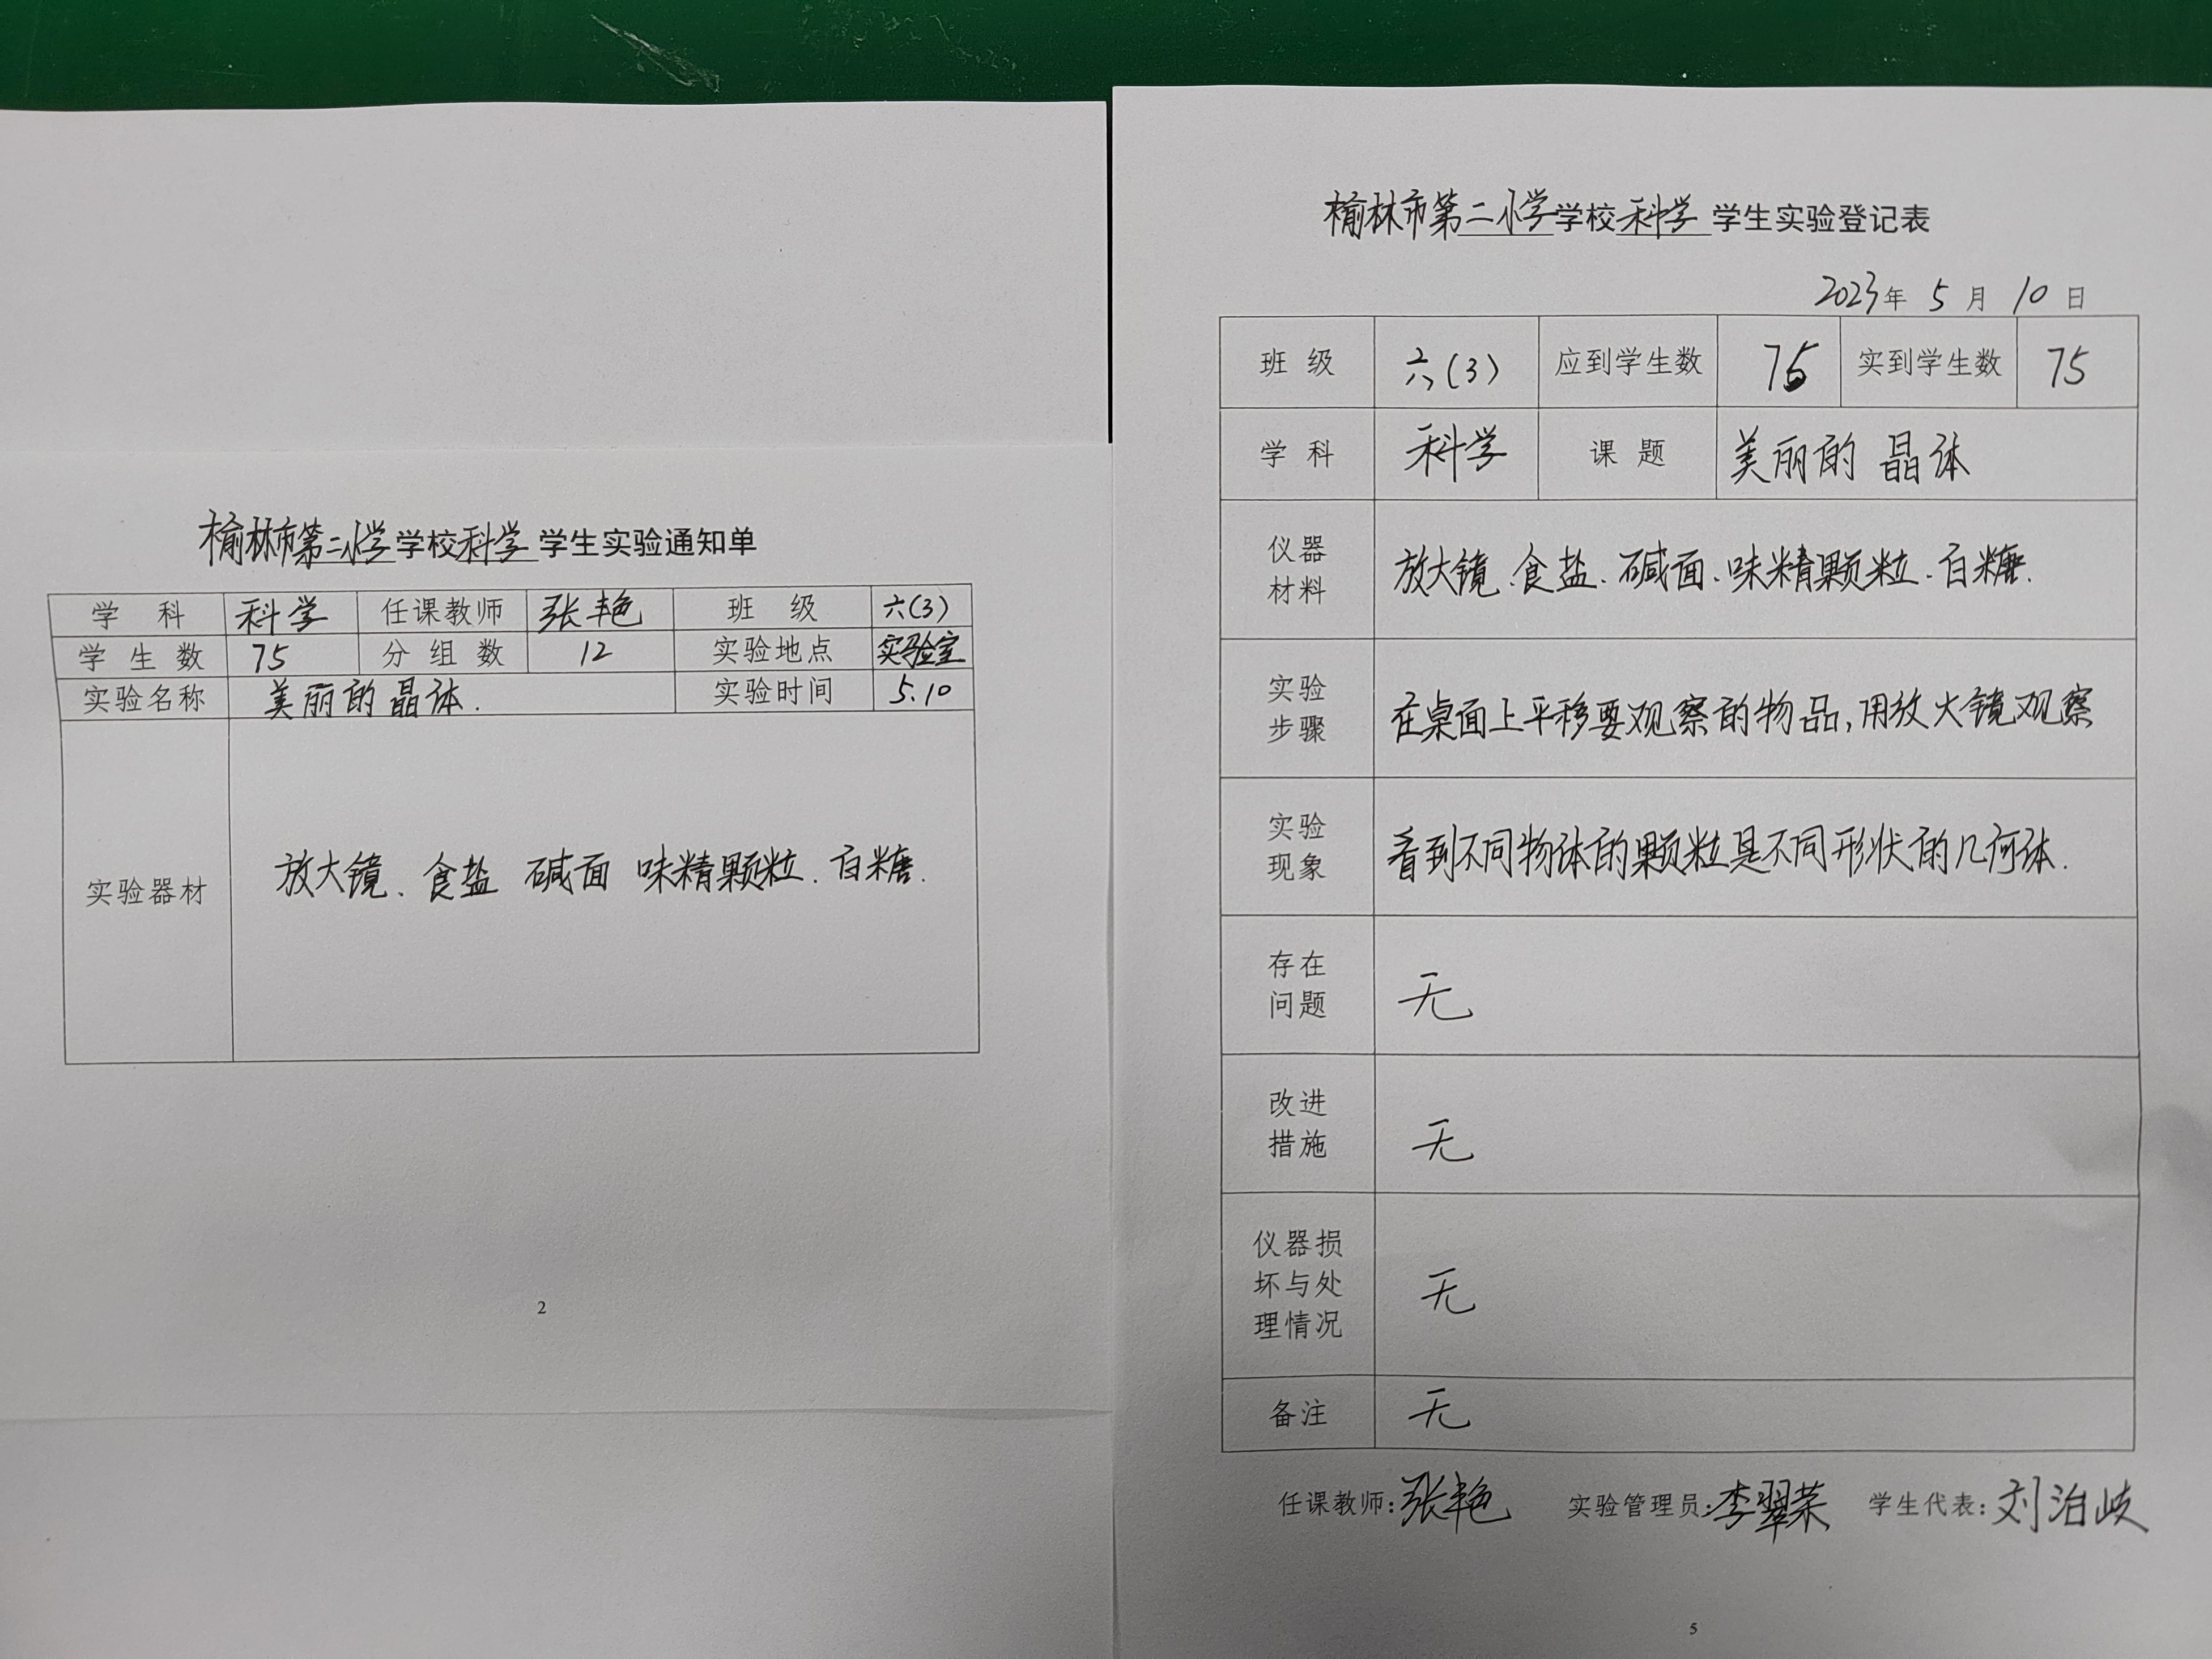 榆林市第二小学学校科学学生实验通知单
学科 科学 任课教师 张艳 班级 六(3)
学生数 75 分组数 12 实验地点 实验室
实验名称 美丽的晶体. 实验时间 5.10
实验器材 放大镜、食盐 碱面 味精颗粒、白糖.
2
榆林市第二小学学校科学学生实验登记表
2023年5月10日
班级 六(3) 应到学生数 75 实到学生数 75
学科 科学 课题 美丽的晶体
仪器
材料
放大镜、食盐、碱面、味精颗粒、白糖.
实验
步骤
在桌面上平移要观察的物品,用放大镜观察
实验
现象
看到不同物体的颗粒是不同形状的几何体.
存在
问题
无
改进
措施
无
仪器损
坏与处
理情况
无
备注 无
任课教师:张艳 实验管理员:李翠荣 学生代表:刘治岐
5